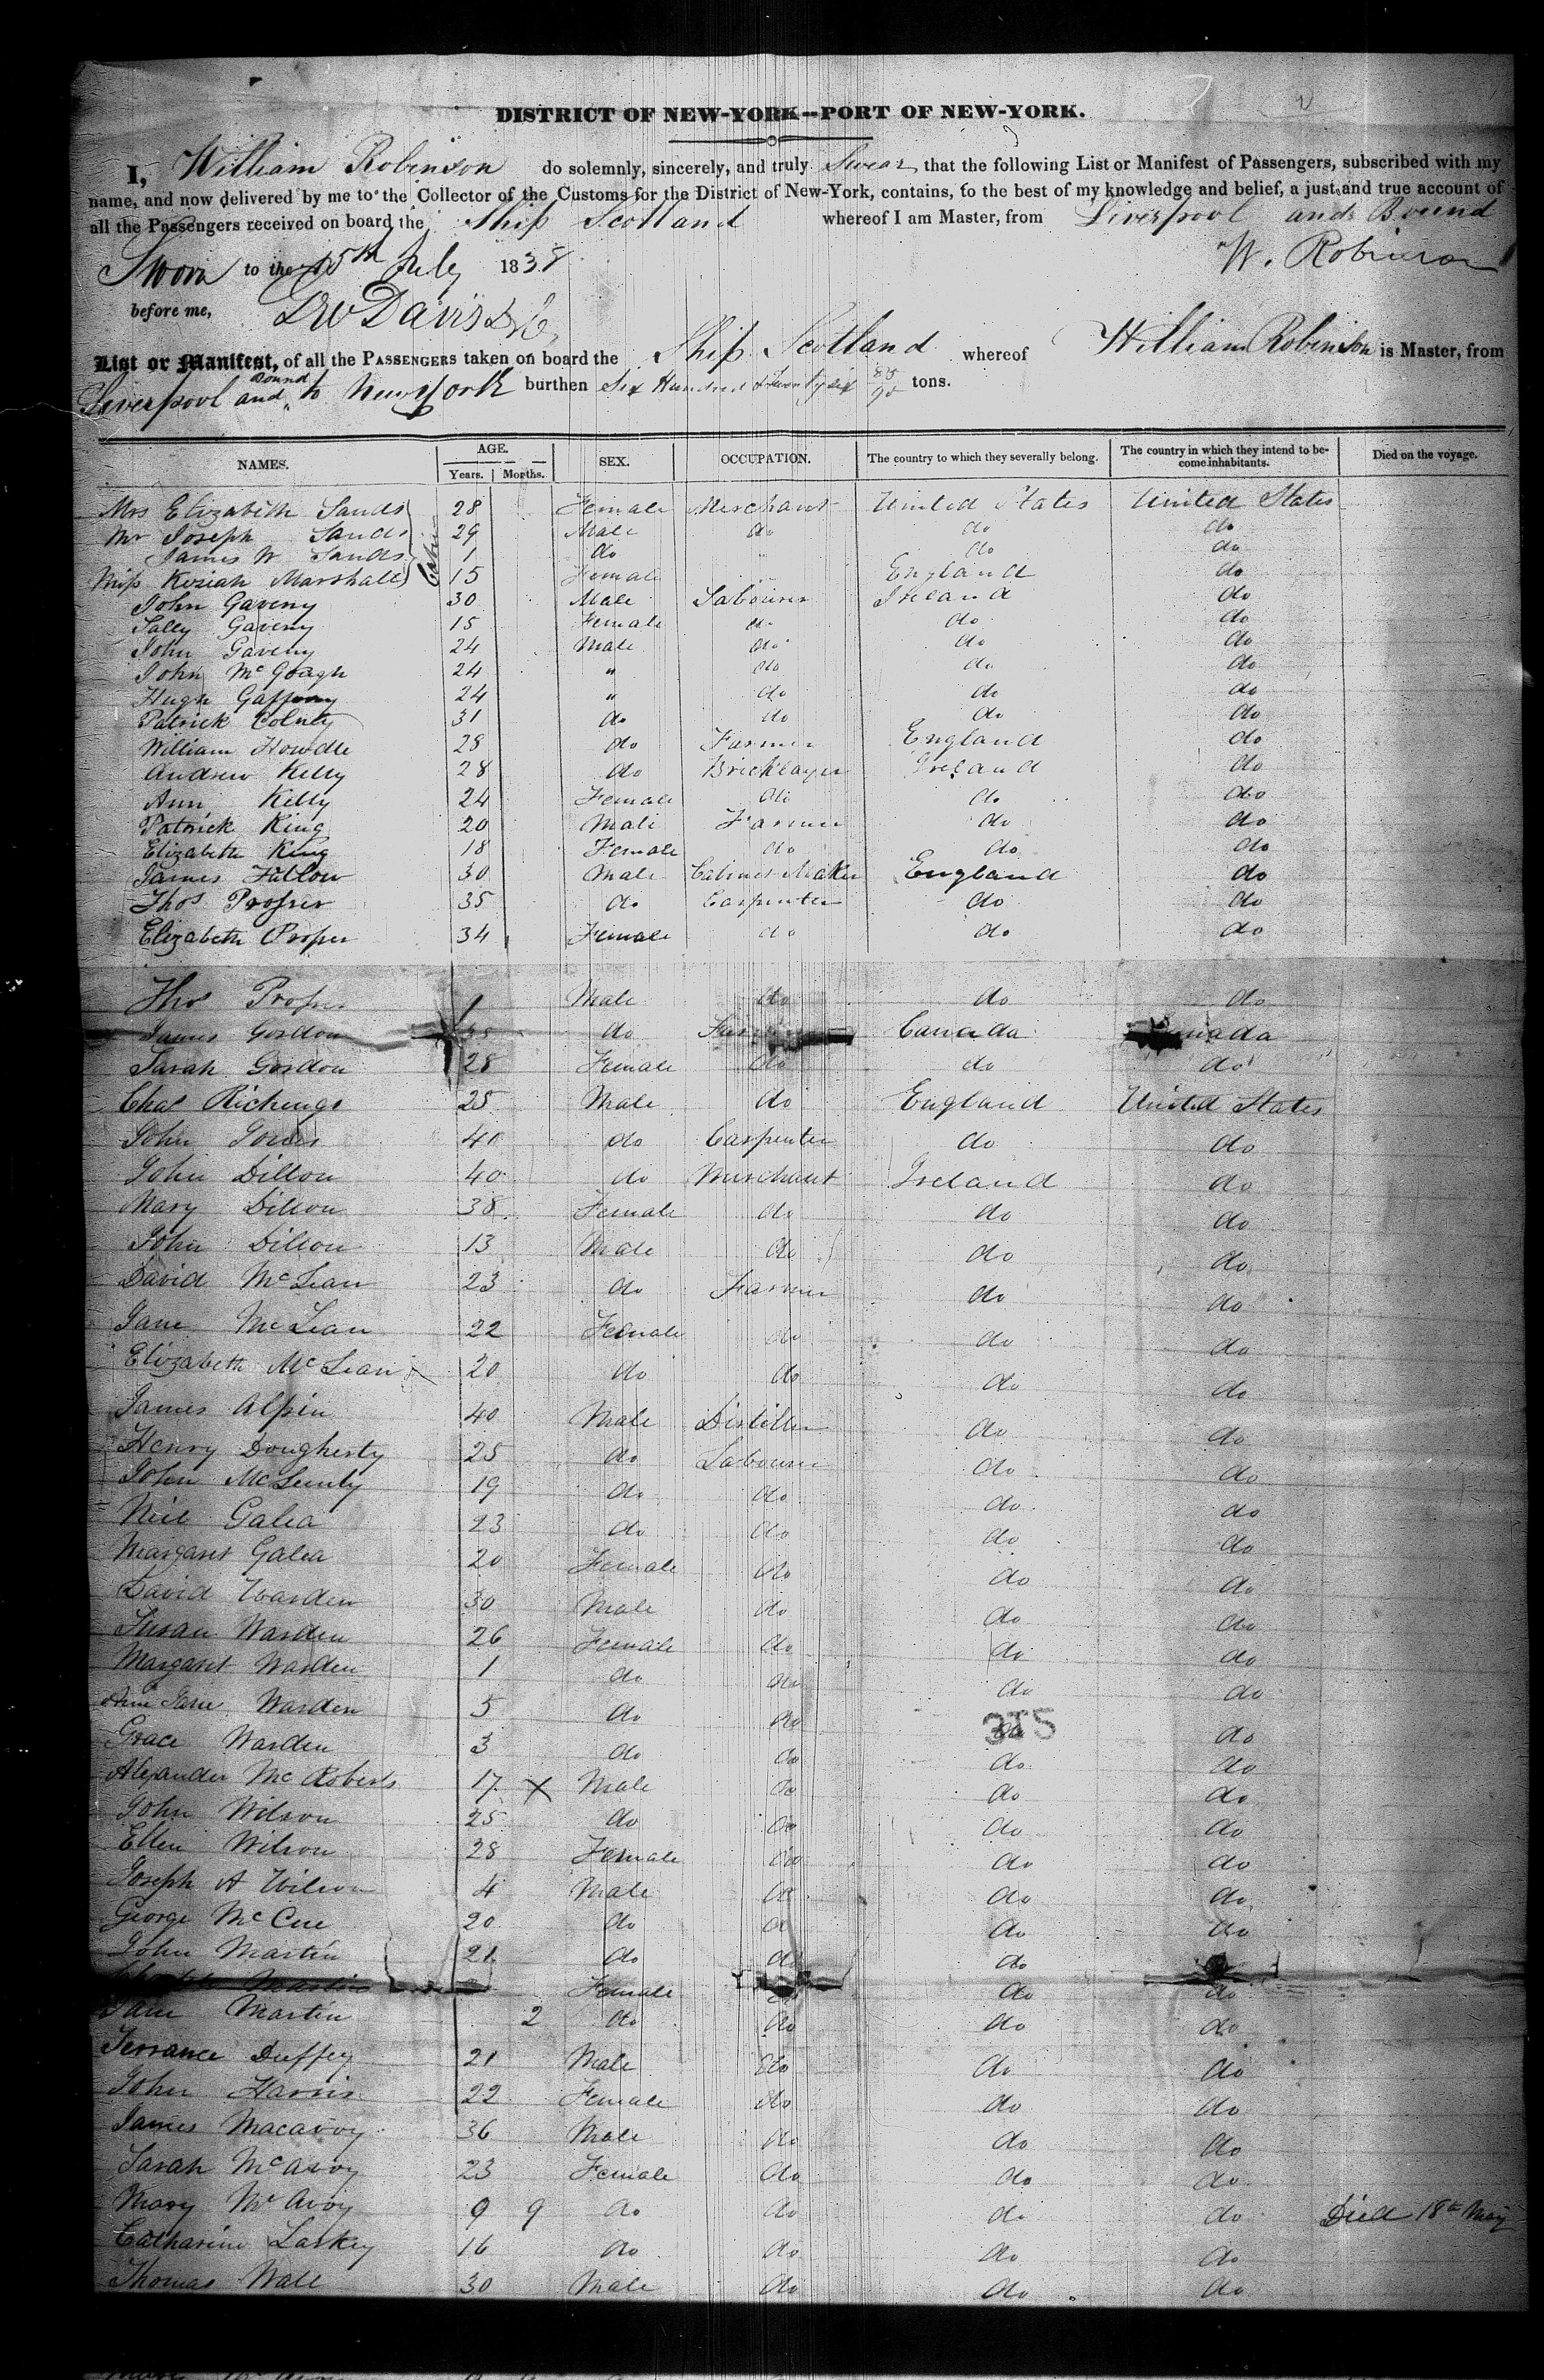 DISTRICT OF NEW-YORK--PORT OF NEW-YORK.
I, William Robinson do solemnly, sincerely, and truly Swear that the following List or Manifest of Passengers, subscribed with my
name, and now delivered by me to the Collector of the Customs for the District of New-York, contains, to the best of my knowledge and belief, a just and true account of
all the Passengers received on board the Ship Scotland whereof I am Master, from Liverpool and Bound
Sworn to the 5th July 1838 W. Robinson
before me, Davis
List or Manifest, of all the PASSENGERS taken on board the Ship Scotland whereof William Robinson is Master, from
Liverpool and bound to New York burthen Six Hundred & Twenty six tons.
NAMES. AGE. Years. Months. SEX. OCCUPATION. The country to which they severally belong. The country in which they intend to become inhabitants. Died on the voyage.
Mrs Elizabeth Sands 28 Female Merchant United States United States
Mr Joseph Sands 29 Male do do do
James W Sands 1 do " do do
Miss Keziah Marshall 15 Female England do
John Gaveny 30 Male Labourer Ireland do
Sally Gaveny 15 Female do do do
John Gaveny 24 Male do do do
John McGoagh 24 " do do do
Hugh 24 " do do do
Patrick 31 do do do do
William Howdle 28 do Farmer England do
Andrew Kelly 28 do Bricklayer Ireland do
Ann Kelly 24 Female do do do
Patrick King 20 Male Farmer do do
Elizabeth King 18 Female do do do
James 30 Male Cabinet Maker England do
Thos Prosser 35 do Carpenter do do
Elizabeth Prosser 34 Female do do do
Thos Prosser 1 Male do do do
James Gordon do Canada
Sarah Gordon 28 Female do do do
Chas Richings 25 Male do England United States
John 40 do Carpenter do do
John Dillon 40 do Merchant Ireland do
Mary Dillon 38 Female do do do
John Dillon 13 Male do do do
David McLean 23 do Farmer do do
Jane McLean 22 Female do do do
Elizabeth McLean 20 do do do do
James Alpin 40 Male Distiller do do
Henry Dougherty 25 do Labourer do do
John 19 do do do do
Neil Galea 23 do do do do
Margaret Galea 20 Female do do do
David Warden 30 Male do do do
Susan Warden 26 Female do do do
Margaret Warden 1 do do do do
Ann Jane Warden 5 do do do do
375
Grace Warden 3 do do do do
Alexander McRoberts 17 X Male do do do
John Wilson 25 do do do do
Ellen Wilson 28 Female do do do
Joseph A Wilson 4 Male do do do
George McCue 20 do do do do
John Martin 21 do do do
Martin Female do do
Jane Martin 2 do do do do
Terrance Duffey 21 Male do do do
John Harris 22 Female do do do
James Macavoy 36 Male do do do
Sarah McAvoy 23 Female do do do
Mary McAvoy 9 9 do do do do Died 18th May
Catharine Laskey 16 do do do do
Thomas Wall 30 Male do do do